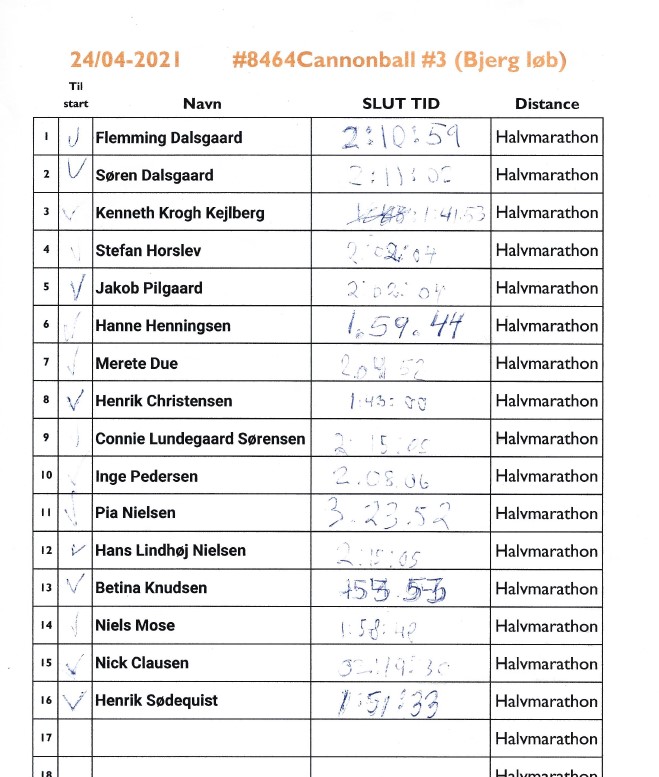 24/04-2021 #8464Cannonball #3 (Bjerg løb)
Til start Navn SLUT TID Distance
1 Flemming Dalsgaard 2:10:59 Halvmarathon
2 Søren Dalsgaard 2:11:05 Halvmarathon
3 Kenneth Krogh Kejlberg 1:41.53 Halvmarathon
4 Stefan Horslev 2:02:04 Halvmarathon
5 Jakob Pilgaard 2:02:04 Halvmarathon
6 Hanne Henningsen 1.59.44 Halvmarathon
7 Merete Due Halvmarathon
8 Henrik Christensen 1:43:00 Halvmarathon
9 Connie Lundegaard Sørensen Halvmarathon
10 Inge Pedersen 2.08.06 Halvmarathon
11 Pia Nielsen 3.23.52 Halvmarathon
12 Hans Lindhøj Nielsen 2:15:05 Halvmarathon
13 Betina Knudsen Halvmarathon
14 Niels Mose 1:58:48 Halvmarathon
15 Nick Clausen Halvmarathon
16 Henrik Sødequist 1:51:33 Halvmarathon
17 Halvmarathon
18 Halvmarathon